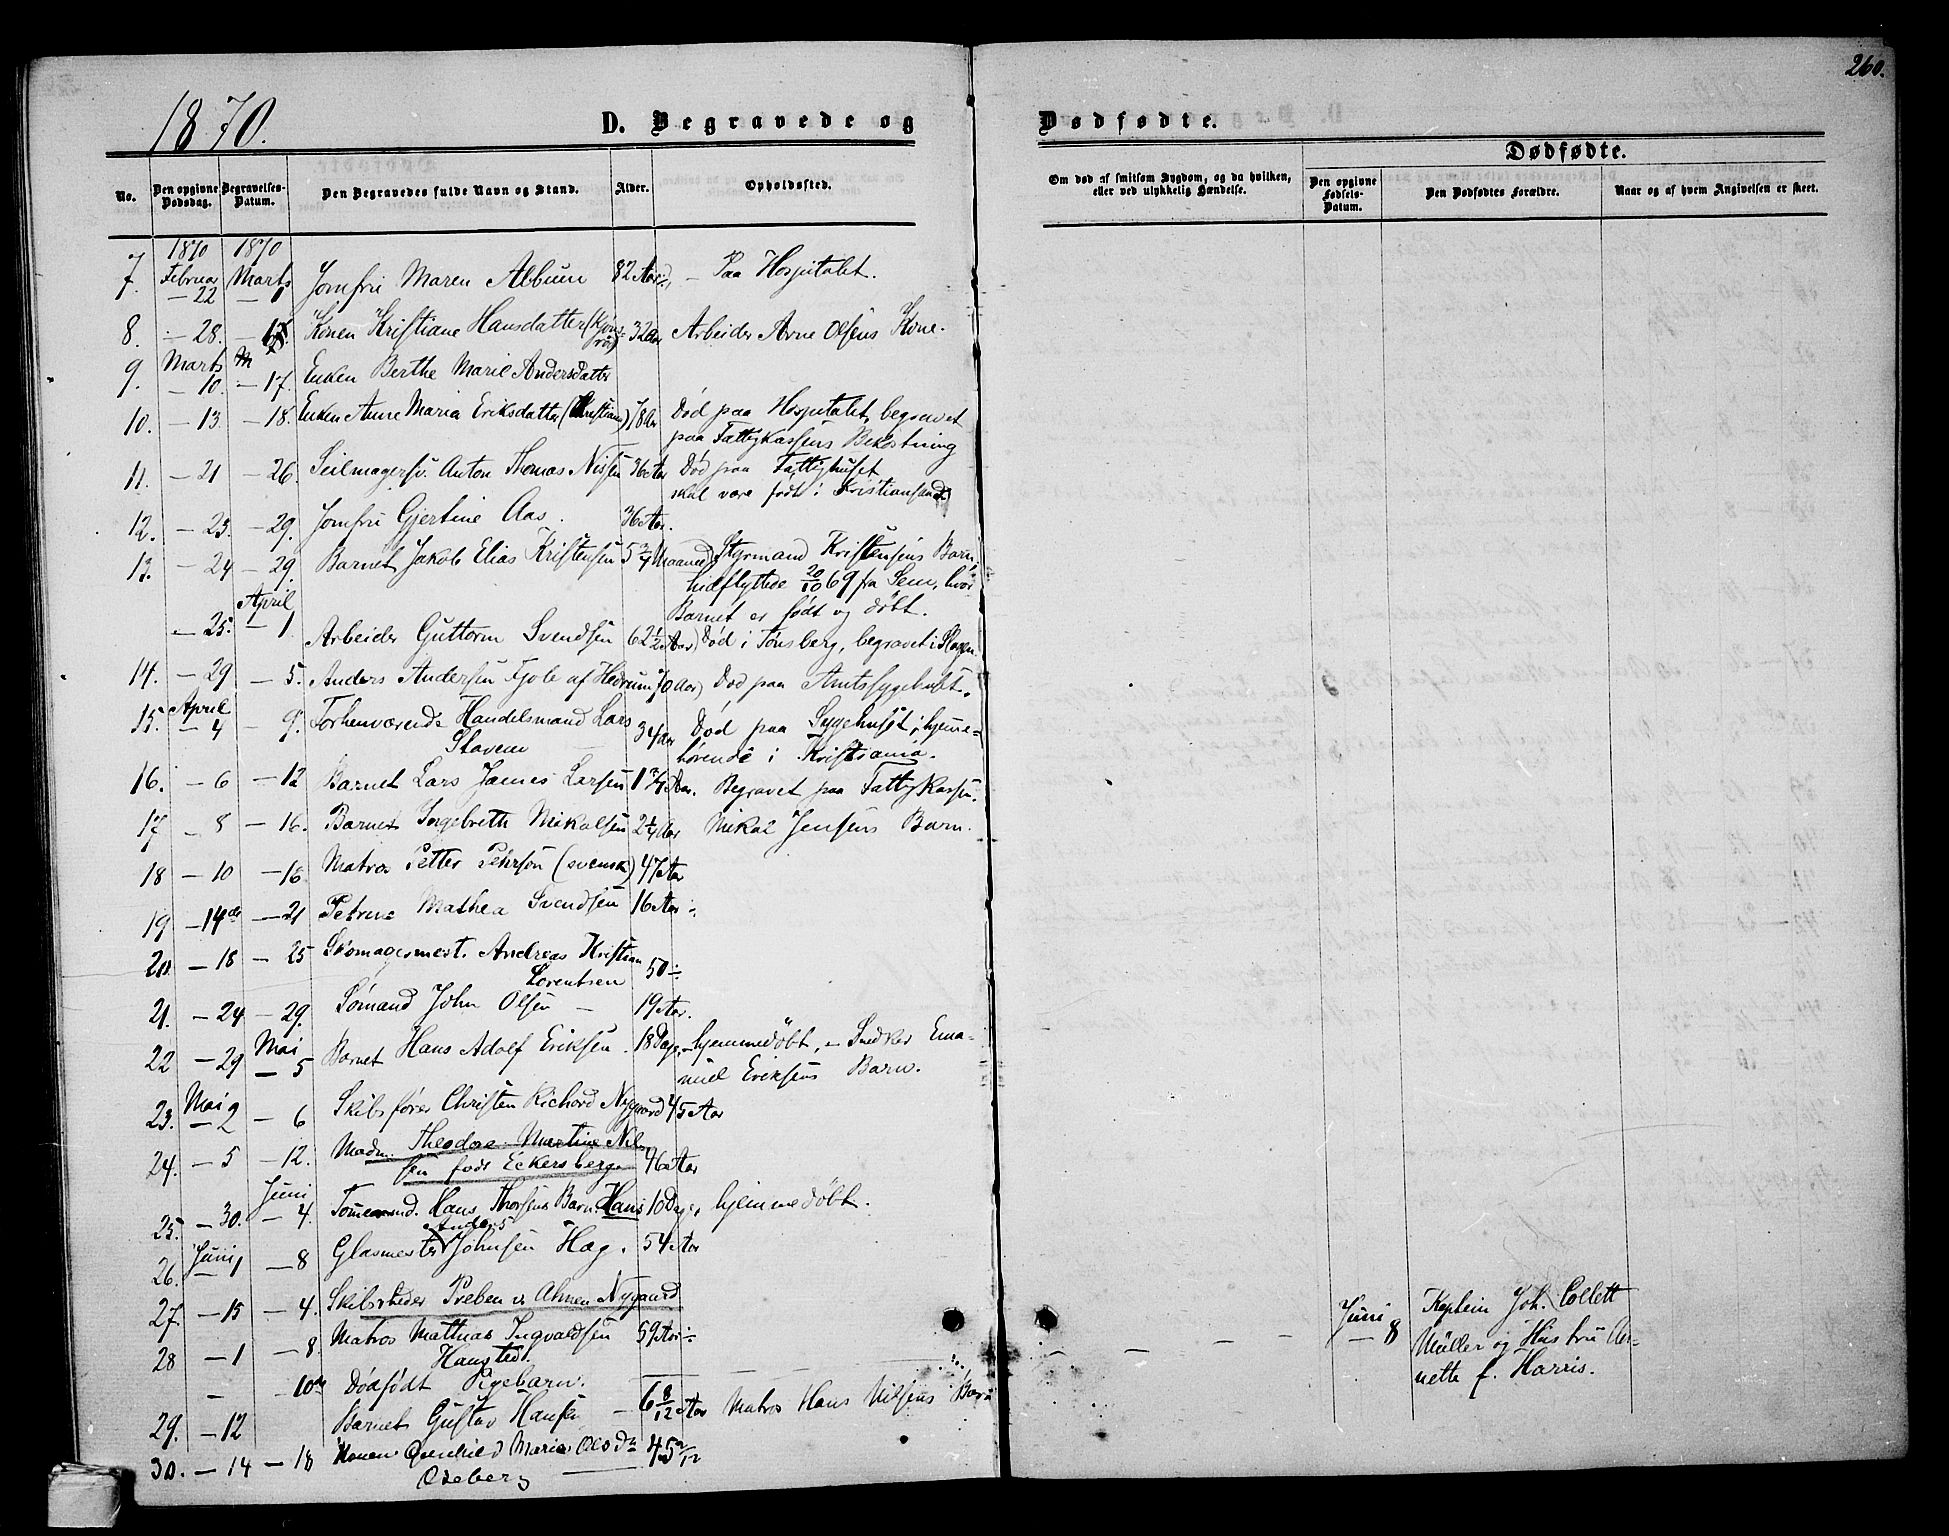 260.
1870.
D. Begravede og Dødfødte.
Dødfødte.
No.
Den opgivne Dødsdag.
Begravelses-Datum.
Den Begravedes fulde Navn og Stand.
Alder.
Opholdssted.
Om død af smitsom Sygdom, og da hvilken, eller ved ulykkelig Hændelse.
Den opgivne Fødsels-Datum.
Den Dødfødtes Forældre.
Naar og af hvem Angivelsen er skeet.
1870 1870
7. Februar — 22 Marts — 1 Jomfru Maren Album 82 Aar — Paa Hospitalet.
8. — 28. Konen Kristiane Hansdatter 32 Aar Arbeider Arne Olsens Kone.
9. Marts — 10. — 17. Enken Berthe Marie Andersdatter
10. — 13. — 18. Enken Anne Maria Eriksdatter 78 Aar Død paa Hospitalet, begravet
paa Fattigkassens Bekostning
11. — 21 — 26. Seilmagersv. Anton Thomas Nissen 36 Aar Død paa Fattighuset
skal være født i Kristiansand
12. — 23. — 29. Jomfru Gjertine Aas. 36 Aar.
13. — 24 — 29. Barnet Jakob Elias Kristensen 5 3/4 Maaned Styrmand Kristensens Barn,
hidflyttede 20/10 69 fra Sem, hvor
Barnet er født og døbt.
— 25. April — 1 Arbeider Guttorm Svendsen 62 1/2 Aar Død i Tønsberg, begravet i Slagen.
14. — 29 — 5. Anders Andersen af Hedrum 70 Aar Død paa Amtssygehuset.
15. April — 4 — 9. Forhenværende Handelsmand Lars
Stavem 34 Aar Død paa Sygehuset; hjemme-
hørende i Kristiania.
16. — 6 — 12 Barnet Lars James Larsen 1 3/4 Aar. Begravet paa Fattigkassen.
17 — 8 — 16. Barnet Ingebreth Mikalsen 2 1/4 Aar Mikal Jensens Barn.
18 — 10 — 16. Matros Petter Petersen (svensk) 47 Aar
19 — 14de — 21 Petrine Mathea Svendsen 16 Aar
20. — 18 — 25 Skomagermest. Andreas Kristian
Lorentsen 50
21. — 24 — 29. Sømand John Olsen — 19 Aar.
22 — 29 Mai — 5 Barnet Hans Adolf Eriksen. 18 Dage, — hjemmedøbt, — Snedker Ema-
nuel Eriksens Barn.
23. Mai — 2 — 6 Skibsfører Christen Richard Nygaard 45 Aar
24. — 5 — 12. Madm. Theodora Martine Niel-
sen født Eckersberg 46 Aar
25. — 30. Juni — 4. Tømmermd. Hans Thorsens Barn Hans 10 Dage, hjemmedøbt.
26. Juni — 1 — 8 Glasmester Anders Johnsen Hag. 54 Aar
27. — 15 — 4. Skibsrheder Preben v. Ahnen Nygaard
28 — 1 — 8. Matros Mathias Ingvaldsen
Hansted. 59 Aar
— — 10de Dødfødt Pigebarn.
Juni — 8 Kaptein Joh. Collett
Müller og Hustru An-
nette f. Harris.
29. — 12 Barnet Gustav Hansen — 6 8/12 Aar Matros Hans Nilsens Barn
30. — 14 — 18 Konen Gunhild Maria Olsdr
Oseberg 45